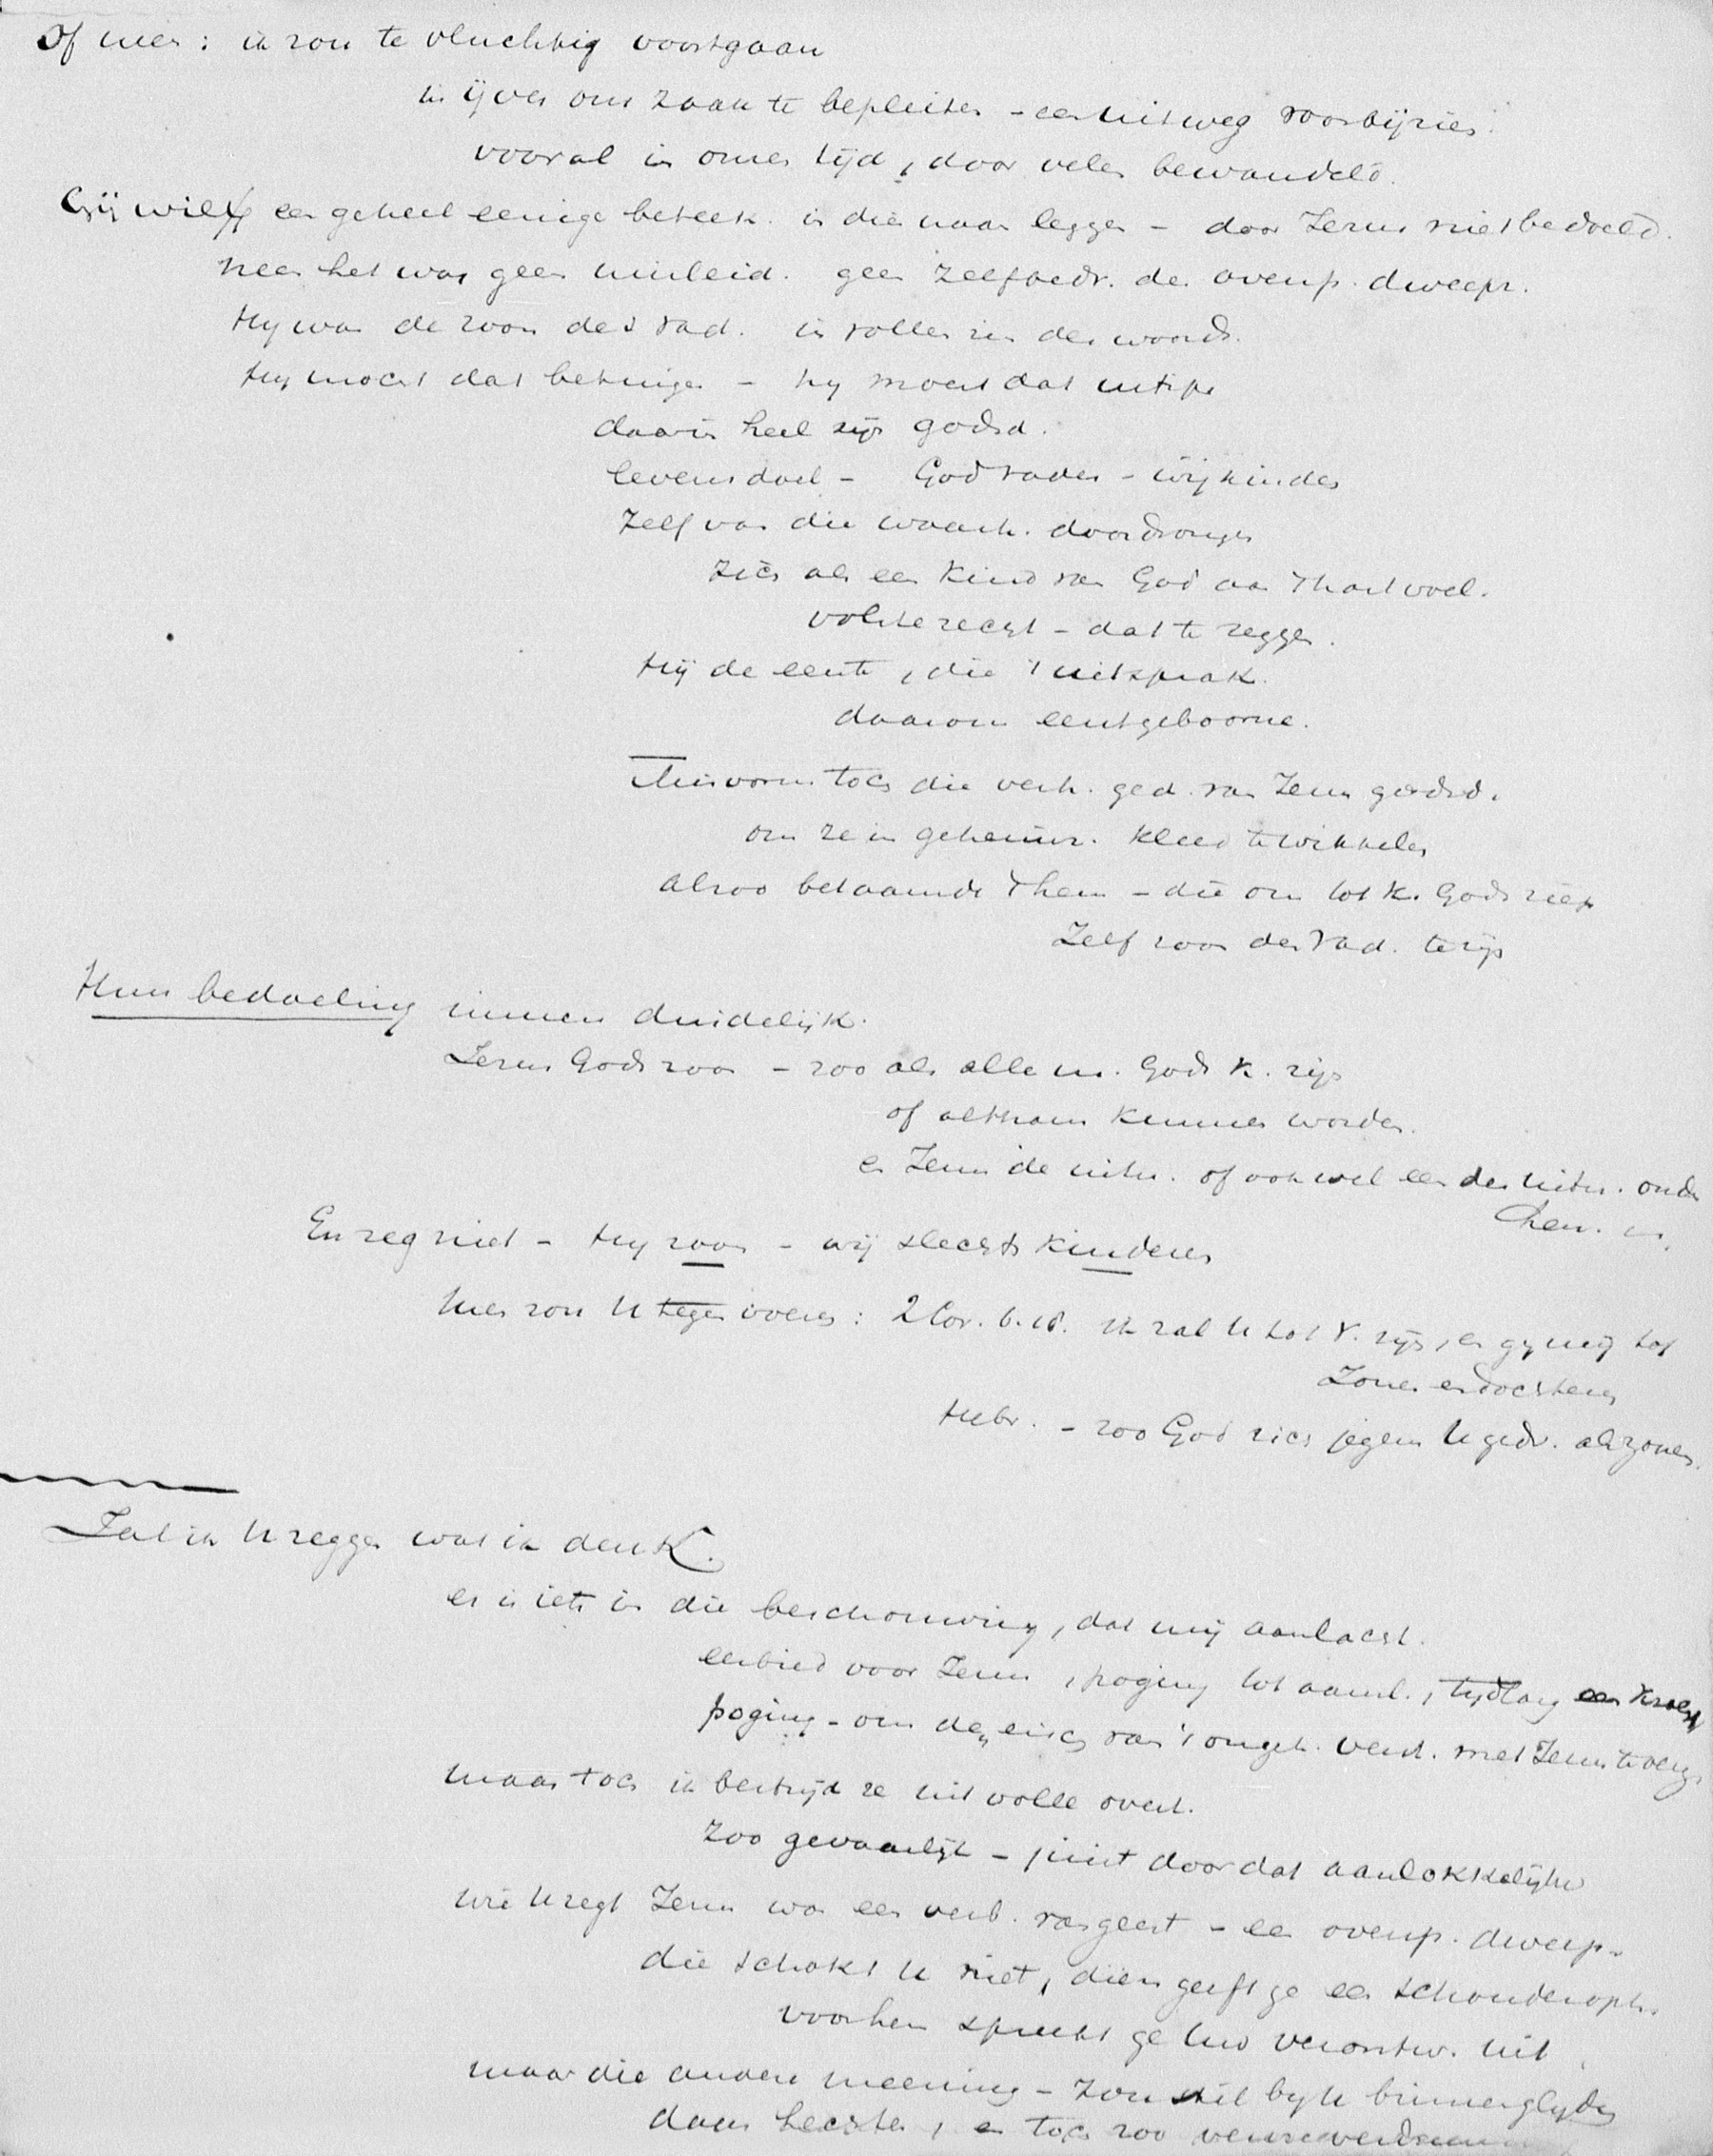 Of neen : ik zou te vluchtig voortgaan
in ijver om zaak te bepleiten - een uitweg voorbijzien.
vooral in onzen tijd, door velen bewandeld.
Gij wilt een geheel eenige beteek. in die naam leggen - door Jezus niet bedoeld.
neen het was geen misleid. geen zelfbedr. der oversp. dweepz.
Hij was de zoon des Vad. in vollen zin des woords.
Hij mocht dat betuigen - hij moest dat
daarin heel zijn godsd.
levensdoel - God vader - wij kinderen
Zelf van die waarh. doordrongen
zich als een kind van God aan 't hart voel.
volste recht - dat te zeggen.
Hij de eerste, die 't uitsprak.
daarom eerstgeboorne.
Misvorm toch die verh. ged. van Jezus godsd.
om ze in geheimz. kleed te wikkelen
alzoo betaamde 't hem - die ons tot k. Gods riep
Zelf zoon des Vad. te zijn
Hun bedoeling immers duidelijk.
Jezus Gods zoon - zoo als alle m. Gods k. zijn
of althans kunnen worden.
en Jezus de uitn. of ook wel een der uitn. onder
hen.
En zeg niet - Hij zoon - wij slechts kinderen
Men zou U tegenvoeren : 2 Cor. 6.18. Ik zal U tot V. zijn, en gij mij tot
Zonen en dochteren
Hebr. - zoo God zich jegens U gedr. als zonen.
Zal ik U zeggen wat ik denk.
er is iets in die beschouwing, dat mij aanlacht.
eerbied voor Jezus, poging tot aansl., tijdlang een
poging - om den eisch van 't ongel. verst. met Jezus te
maar toch ik bestrijd ze uit volle overt.
Zoo gevaarlijk - juist door dat aanlokkelijke
wie U zegt Jezus was een verb. van geest - een oversp. dweep.
die schokt U niet, dien geeft ge een schouderoph.
voor hem spreekt ge Uw verontw. uit
maar die andere meening - zou stil bij U binnenglijden
daar hechten, en toch zoo